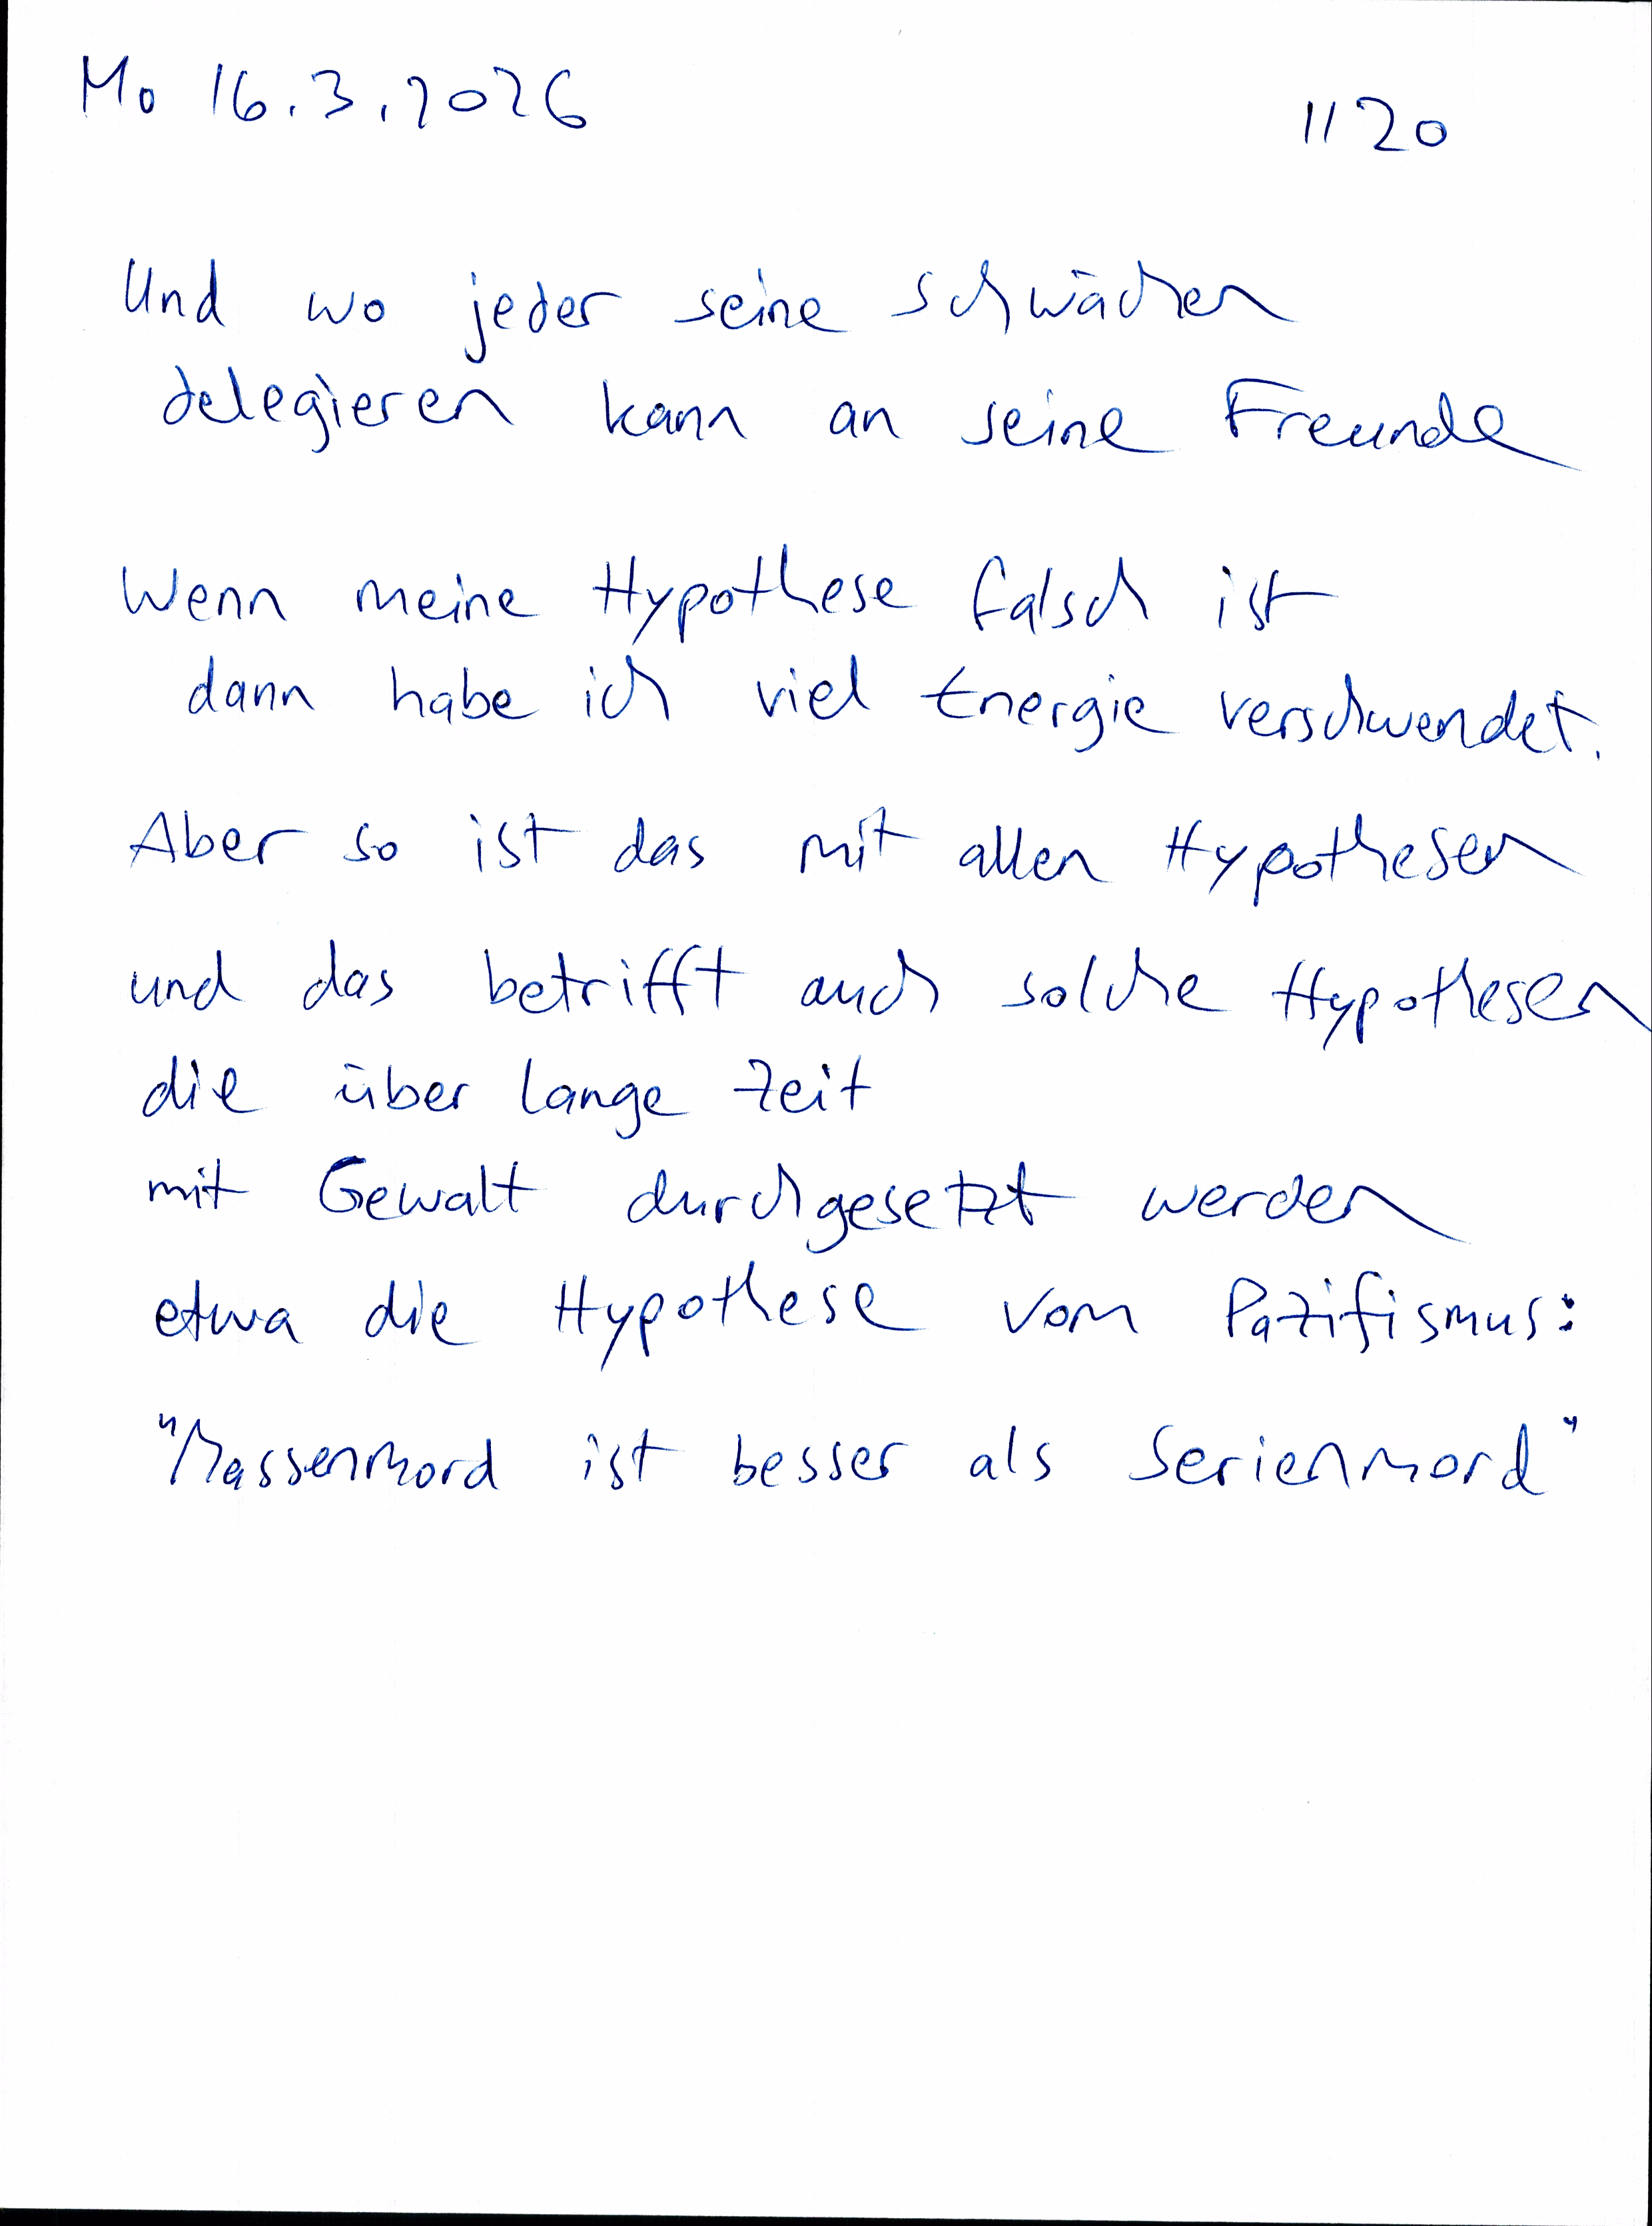 Mo 16.3.2026 1120
Und wo jeder seine schwächen
delegieren kann an seine Freunde
Wenn meine Hypothese falsch ist
dann habe ich viel Energie verschwendet.
Aber so ist das mit allen Hypothesen
und das betrifft auch solche Hypothesen
die über lange Zeit
mit Gewalt durchgesetzt werden
etwa die Hypothese vom Pazifismus:
"Massenmord ist besser als Serienmord"